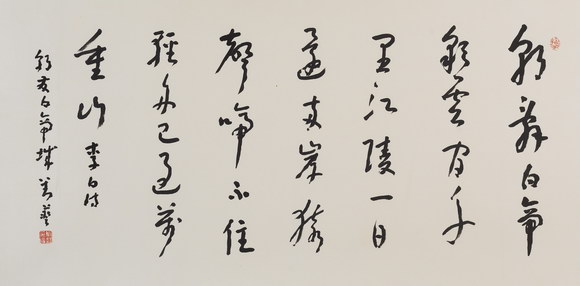 朝辭白帝
彩雲間千
里江陵一日
還兩岸猿
聲啼不住
輕舟已過萬
重山 李白詩
朝發白帝城